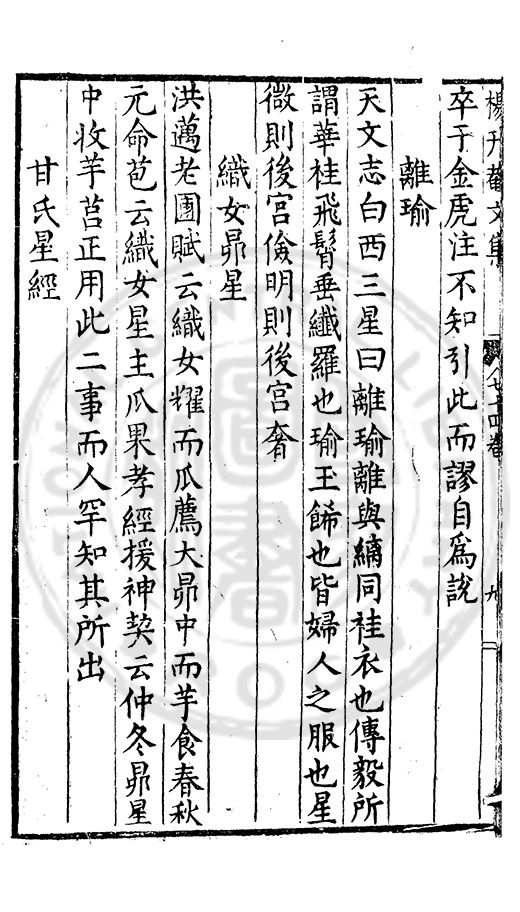 楊升菴文集
卒于金虎注不知引此而謬自為說
離瑜
天文志白西三星曰離瑜離與縭同袿衣也傅毅所
謂華袿飛髾垂纖羅也瑜玉餙也皆婦人之服也星
微則後宮儉明則後宮奢
織女昴星
洪邁老圃賦云織女耀而瓜薦大昴中而芋食春秋
元命苞云織女星主瓜果孝經援神契云仲冬昴星
中收芋莒正用此二事而人罕知其所出
甘氏星經